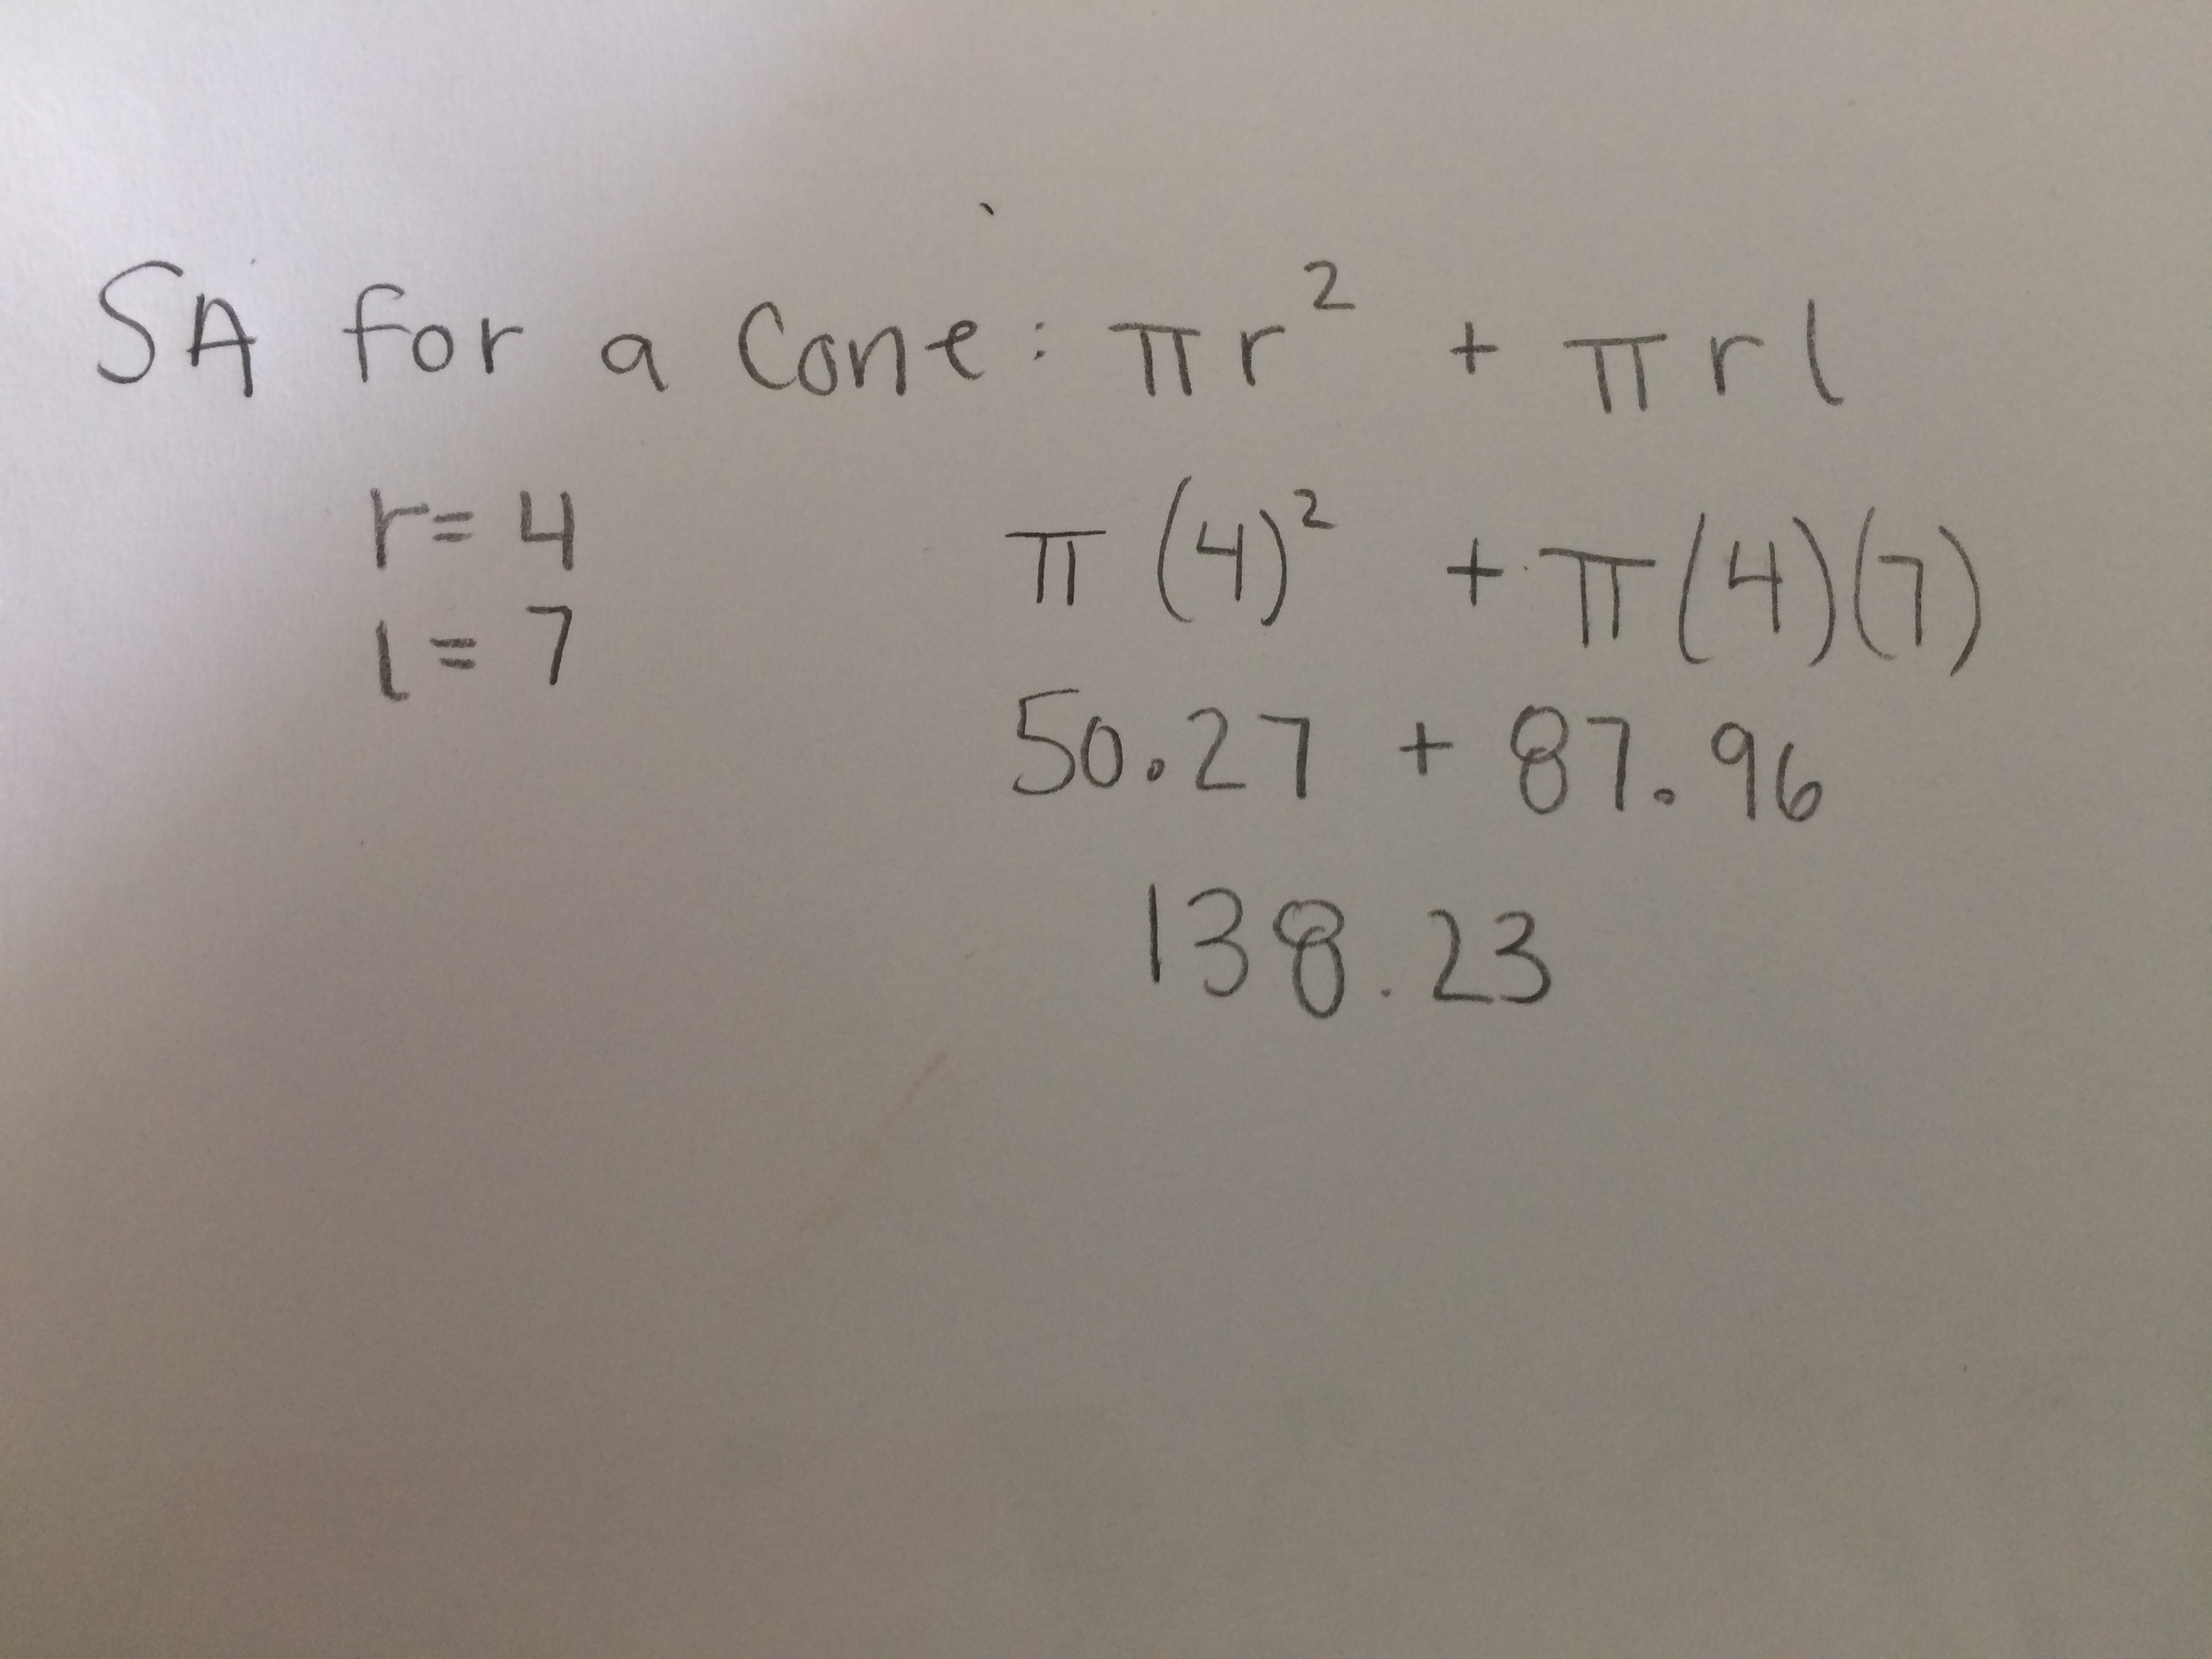 SA for a Cone: πr² + πrl
r = 4 π(4)² + π(4)(7)
l = 7
50.27 + 87.96
138.23